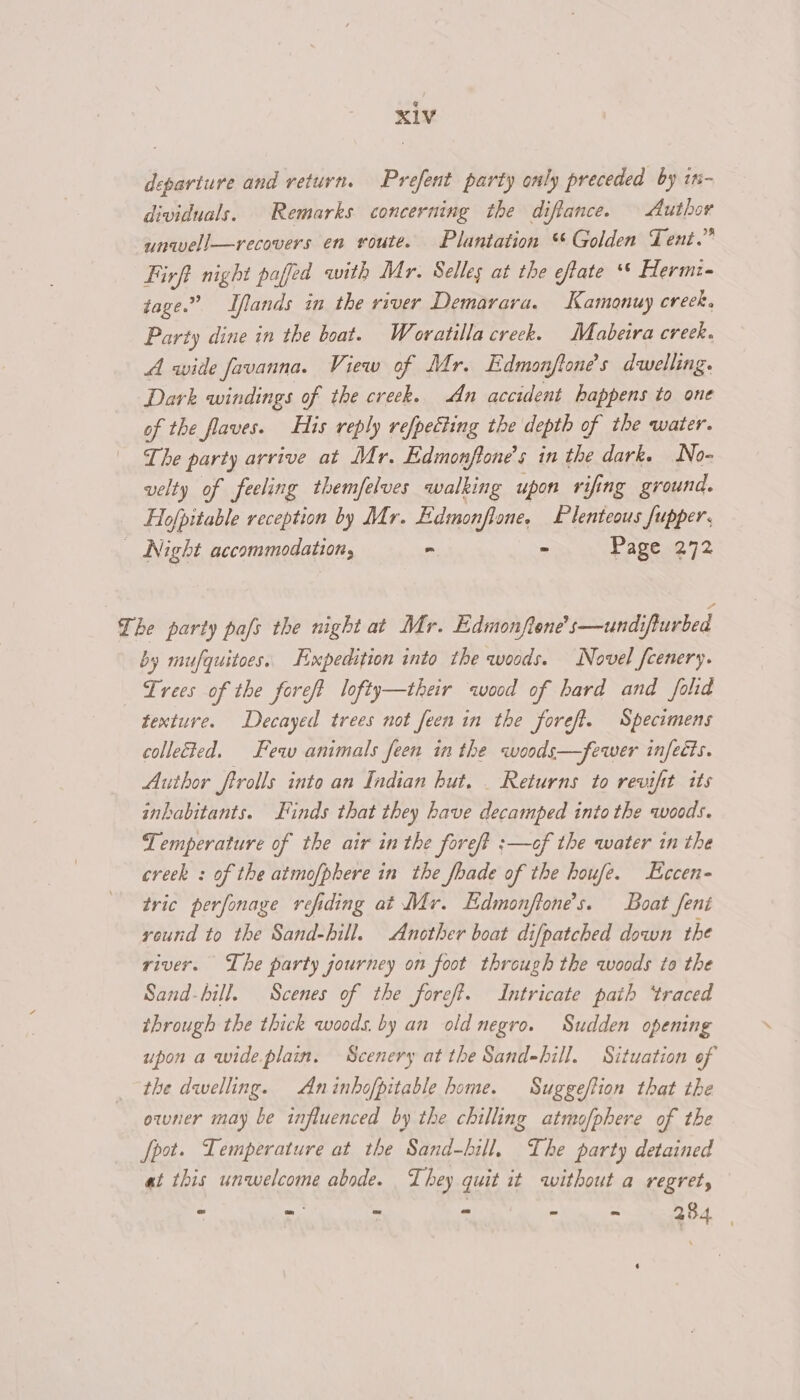 xiv
departure and return. Preſent party only preceded by in-
dividuals. Remarks concerning the diſtance. Author
unwell—recovers en route. Plantation “Golden Tent.”
Firſt night paſſed with Mr. Selles at the eſtate “Hermi-
tage.” Iſlands in the river Demarara. Kamonuy creek.
Party dine in the boat. Woratilla creek. Mabeira creek.
A wide ſavanna. View of Mr. Edmonſtone's dwelling.
Dark windings of the creek. An accident happens to one
of the ſlaves. His reply reſpecting the depth of the water.
The party arrive at Mr. Edmonſtone's in the dark. No-
velty of feeling themſelves walking upon riſing ground.
Hoſpitable reception by Mr. Edmonſtone. Plenteous ſupper.
Night accommodation, - - Page 272
The party paſs the night at Mr. Edmonſtone's—undiſturbed
by muſquitoes. Expedition into the woods. Novel ſcenery.
Trees of the foreſt lofty—their wood of hard and ſolid
texture. Decayed trees not ſeen in the foreſt. Specimens
collected. Few animals ſeen in the woods—fewer inſects.
Author ſtrolls into an Indian hut. Returns to reviſit its
inhabitants. Finds that they have decamped into the woods.
Temperature of the air in the foreſt:—of the water in the
creek: of the atmoſphere in the ſhade of the houſe. Eccen-
tric perſonage reſiding at Mr. Edmonſtone's. Boat ſent
round to the Sand-hill. Another boat diſpatched down the
river. The party journey on foot through the woods to the
Sand-hill. Scenes of the foreſt. Intricate path traced
through the thick woods by an old negro. Sudden opening
upon a wide plain. Scenery at the Sand-hill. Situation of
the dwelling. An inhoſpitable home. Suggeſtion that the
owner may be influenced by the chilling atmoſphere of the
ſpot. Temperature at the Sand-hill. The party detained
at this unwelcome abode. They quit it without a regret,
- - - - - - 284